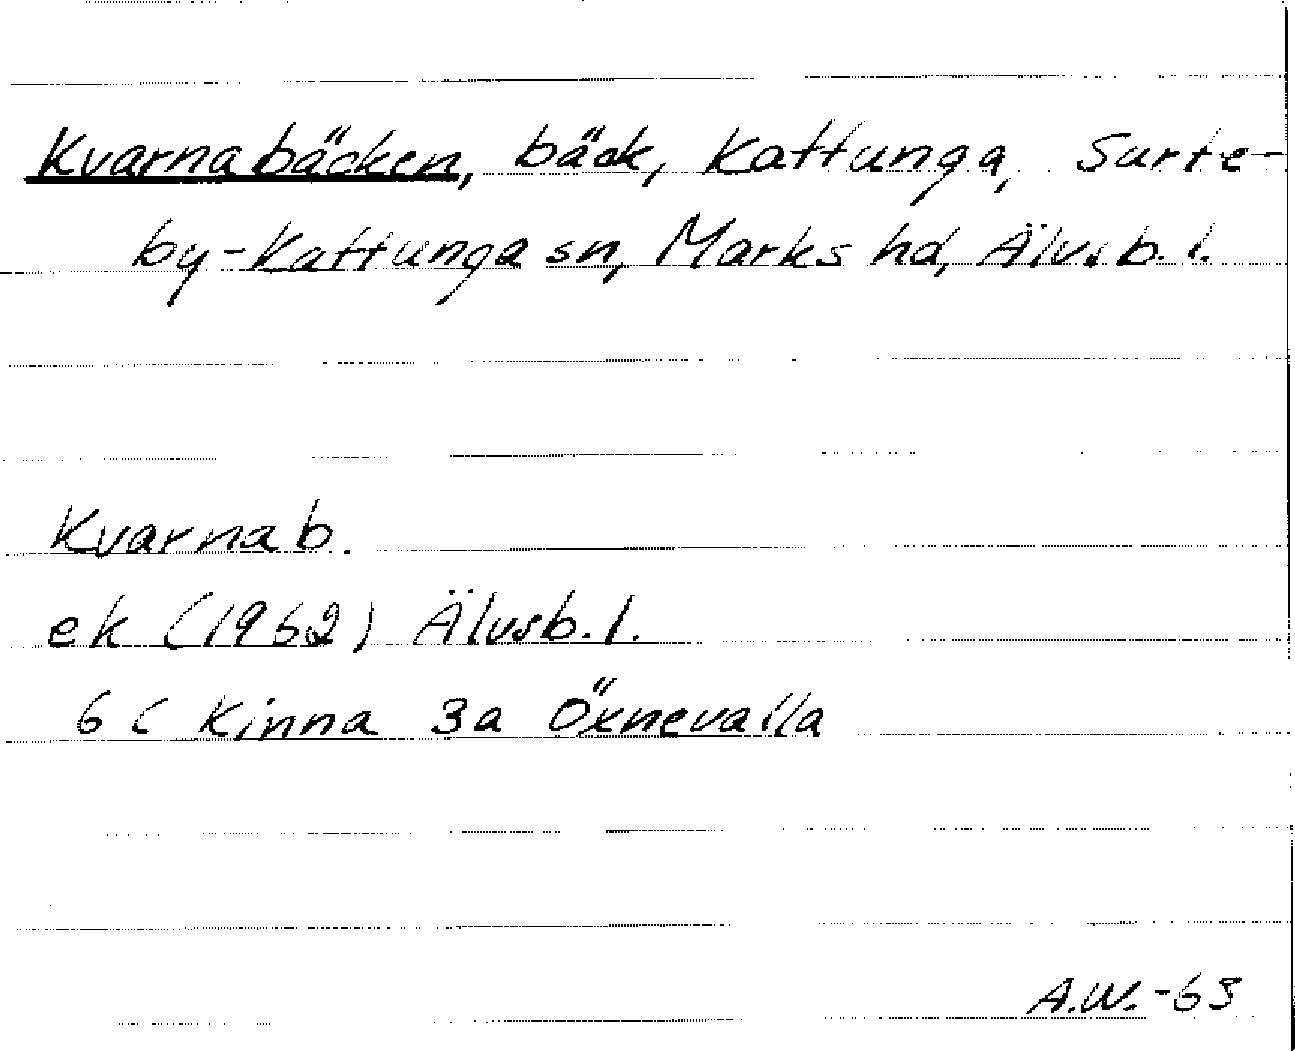 Kvarnabäcken, bäck, Kattunga, Surte-
by-Kattunga sn, Marks hd, Älvsb. l.
Kvarnab.
ek (1962) Älvsb. l.
6 C Kinna 3a Öxnevalla
A.W. -63